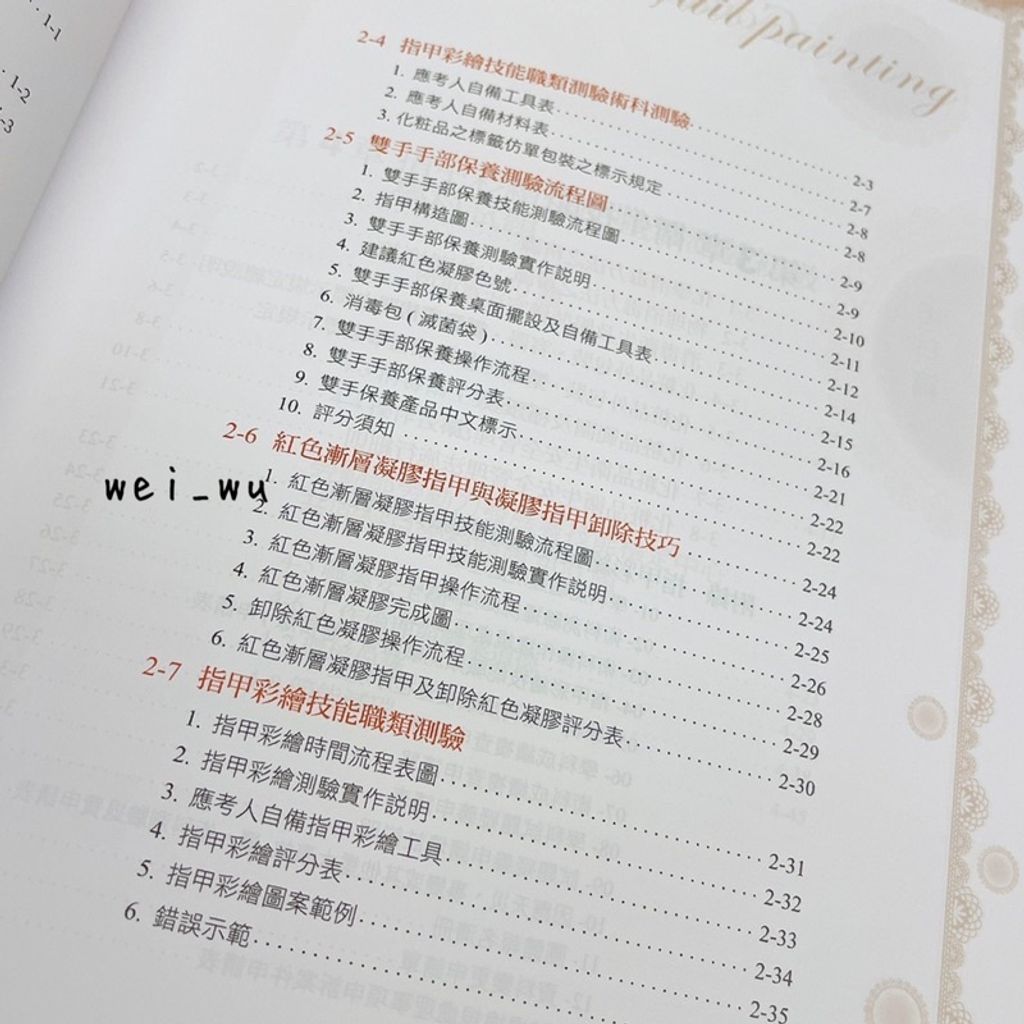 nailpainting
2-4 指甲彩繪技能職類測驗術科測驗 2-3
1. 應考人自備工具表 2-7
2. 應考人自備材料表 2-8
3. 化粧品之標籤仿單包裝之標示規定 2-8
2-5 雙手手部保養測驗流程圖 2-9
1. 雙手手部保養技能測驗流程圖 2-9
2. 指甲構造圖 2-10
3. 雙手手部保養測驗實作説明 2-11
4. 建議紅色凝膠色號 2-12
5. 雙手手部保養桌面擺設及自備工具表 2-14
6. 消毒包 ( 滅菌袋 ) 2-15
7. 雙手手部保養操作流程 2-16
8. 雙手手部保養評分表 2-21
9. 雙手保養產品中文標示 2-22
10. 評分須知 2-22
2-6 紅色漸層凝膠指甲與凝膠指甲卸除技巧 2-24
1. 紅色漸層凝膠指甲技能測驗流程圖 2-24
2. 紅色漸層凝膠指甲技能測驗實作説明 2-25
3. 紅色漸層凝膠指甲操作流程 2-26
4. 紅色漸層凝膠完成圖 2-28
5. 卸除紅色凝膠操作流程 2-29
6. 紅色漸層凝膠指甲及卸除紅色凝膠評分表 2-30
2-7 指甲彩繪技能職類測驗
1. 指甲彩繪時間流程表圖 2-31
2. 指甲彩繪測驗實作説明 2-32
3. 應考人自備指甲彩繪工具 2-33
4. 指甲彩繪評分表 2-34
5. 指甲彩繪圖案範例 2-35
6. 錯誤示範
wei_wu
1-1
1-2